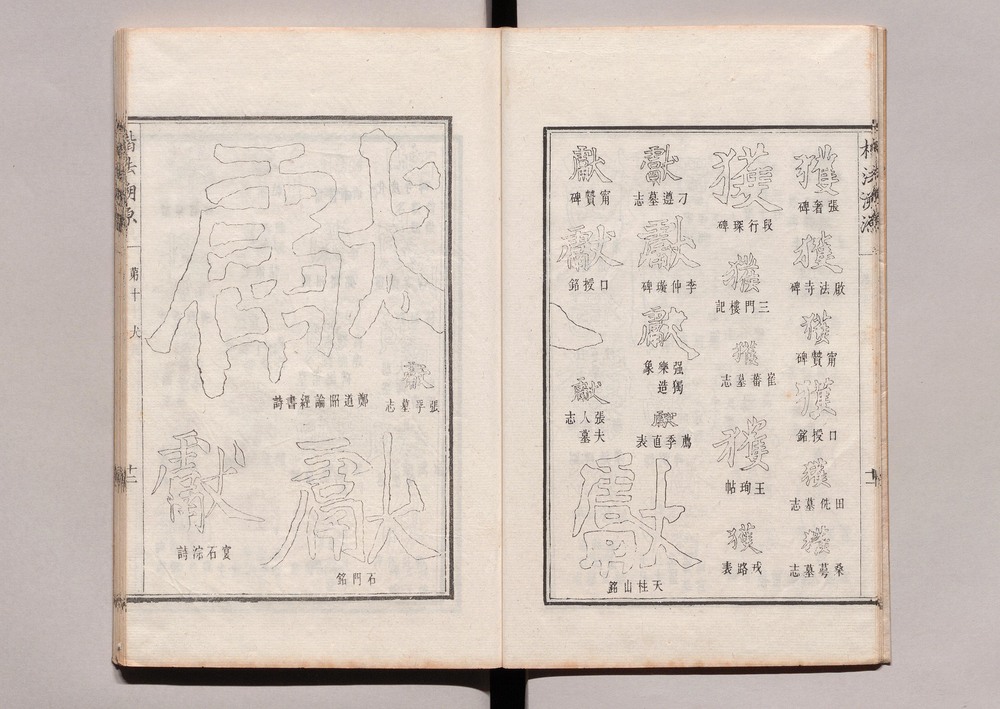 楷法溯源
獲
張奢碑
獲
啟法寺碑
獲
甯贊碑
獲
口授銘
獲
田侁墓志
獲
桑墓志
獲
段行琛碑
獲
三門樓記
獲
崔蕃墓志
獲
王珣帖
獲
戎路表
獻
刁遵墓志
獻
李仲璇碑
獻
强獨樂造象
獻
薦季直表
獻
甯贊碑
獻
口授銘
獻
張夫人墓志
獻
天柱山銘
獻
鄭道昭論經書詩
獻
張孚墓志
獻
石門銘
獻
宴石淙詩
楷法溯源
第十
犬
十二